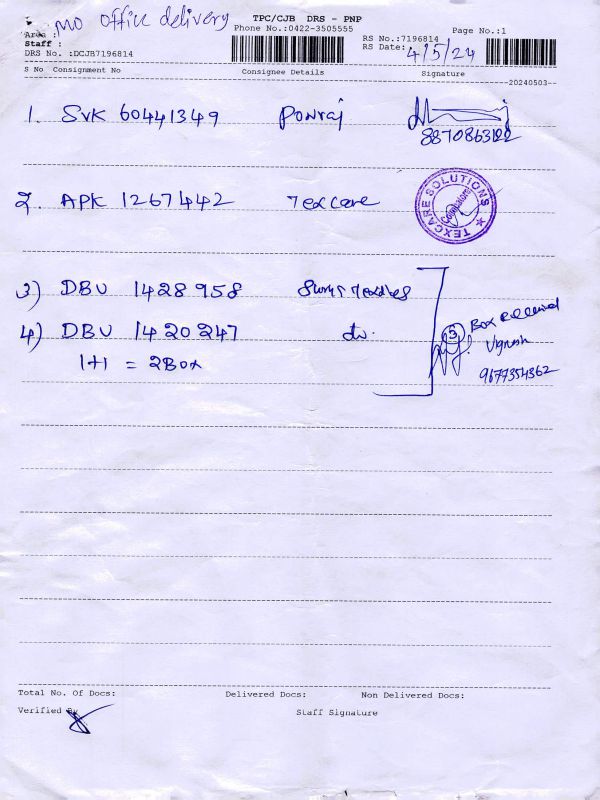 MO office delivery
TPC/CJB DRS - PNP
Phone No.:0422-3505555
Page No.:1
Area :
Staff :
DRS No. :DCJB7196814
RS No.:7196814
RS Date: 4/5/24
S No Consignment No Consignee Details Signature
20240503
1. SVK 60441349 Ponraj
8870863122
2. APK 1267442 Texcare
TEXCARE SOLUTIONS
Coimbatore
3) DBU 1428958
4) DBU 1420247 do.
1+1 = 2Box
5 Box Received
Vignesh
9677354362
Total No. Of Docs: Delivered Docs: Non Delivered Docs:
Verified By Staff Signature